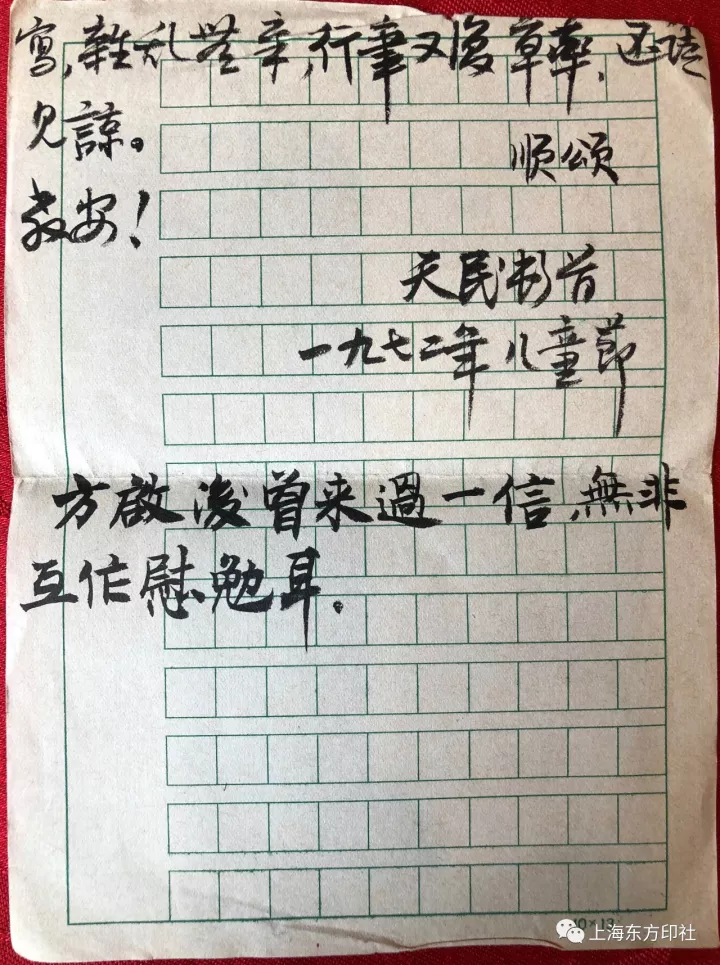 寫,雜乱無章,行筆又復草率,还請
见諒。
順頌
教安!
天民彬首
一九七二年儿童節
方啟浚曾来過一信,無非
互作慰勉耳。
10×13
上海东方印社